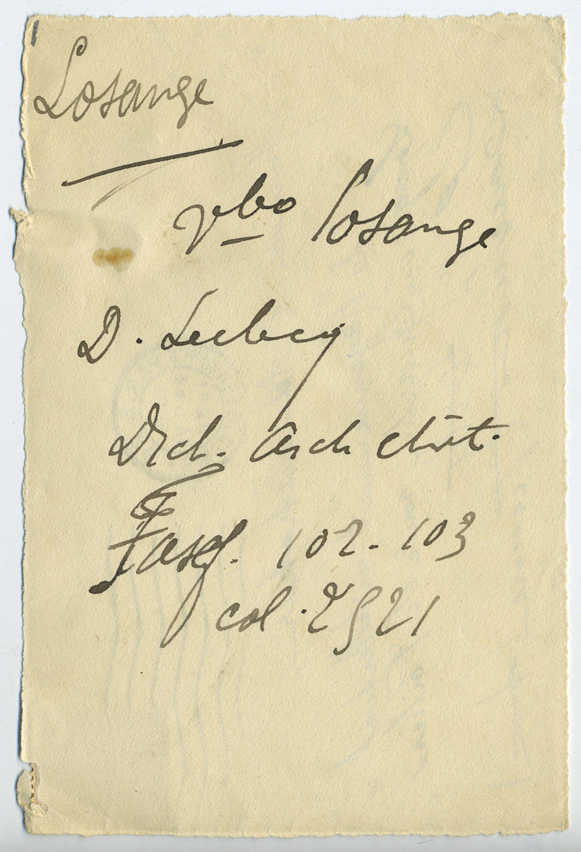 Losange
vbo losange
D. Leclercq
Dict. Arch chrét.
Fasc. 102-103
col. 2521